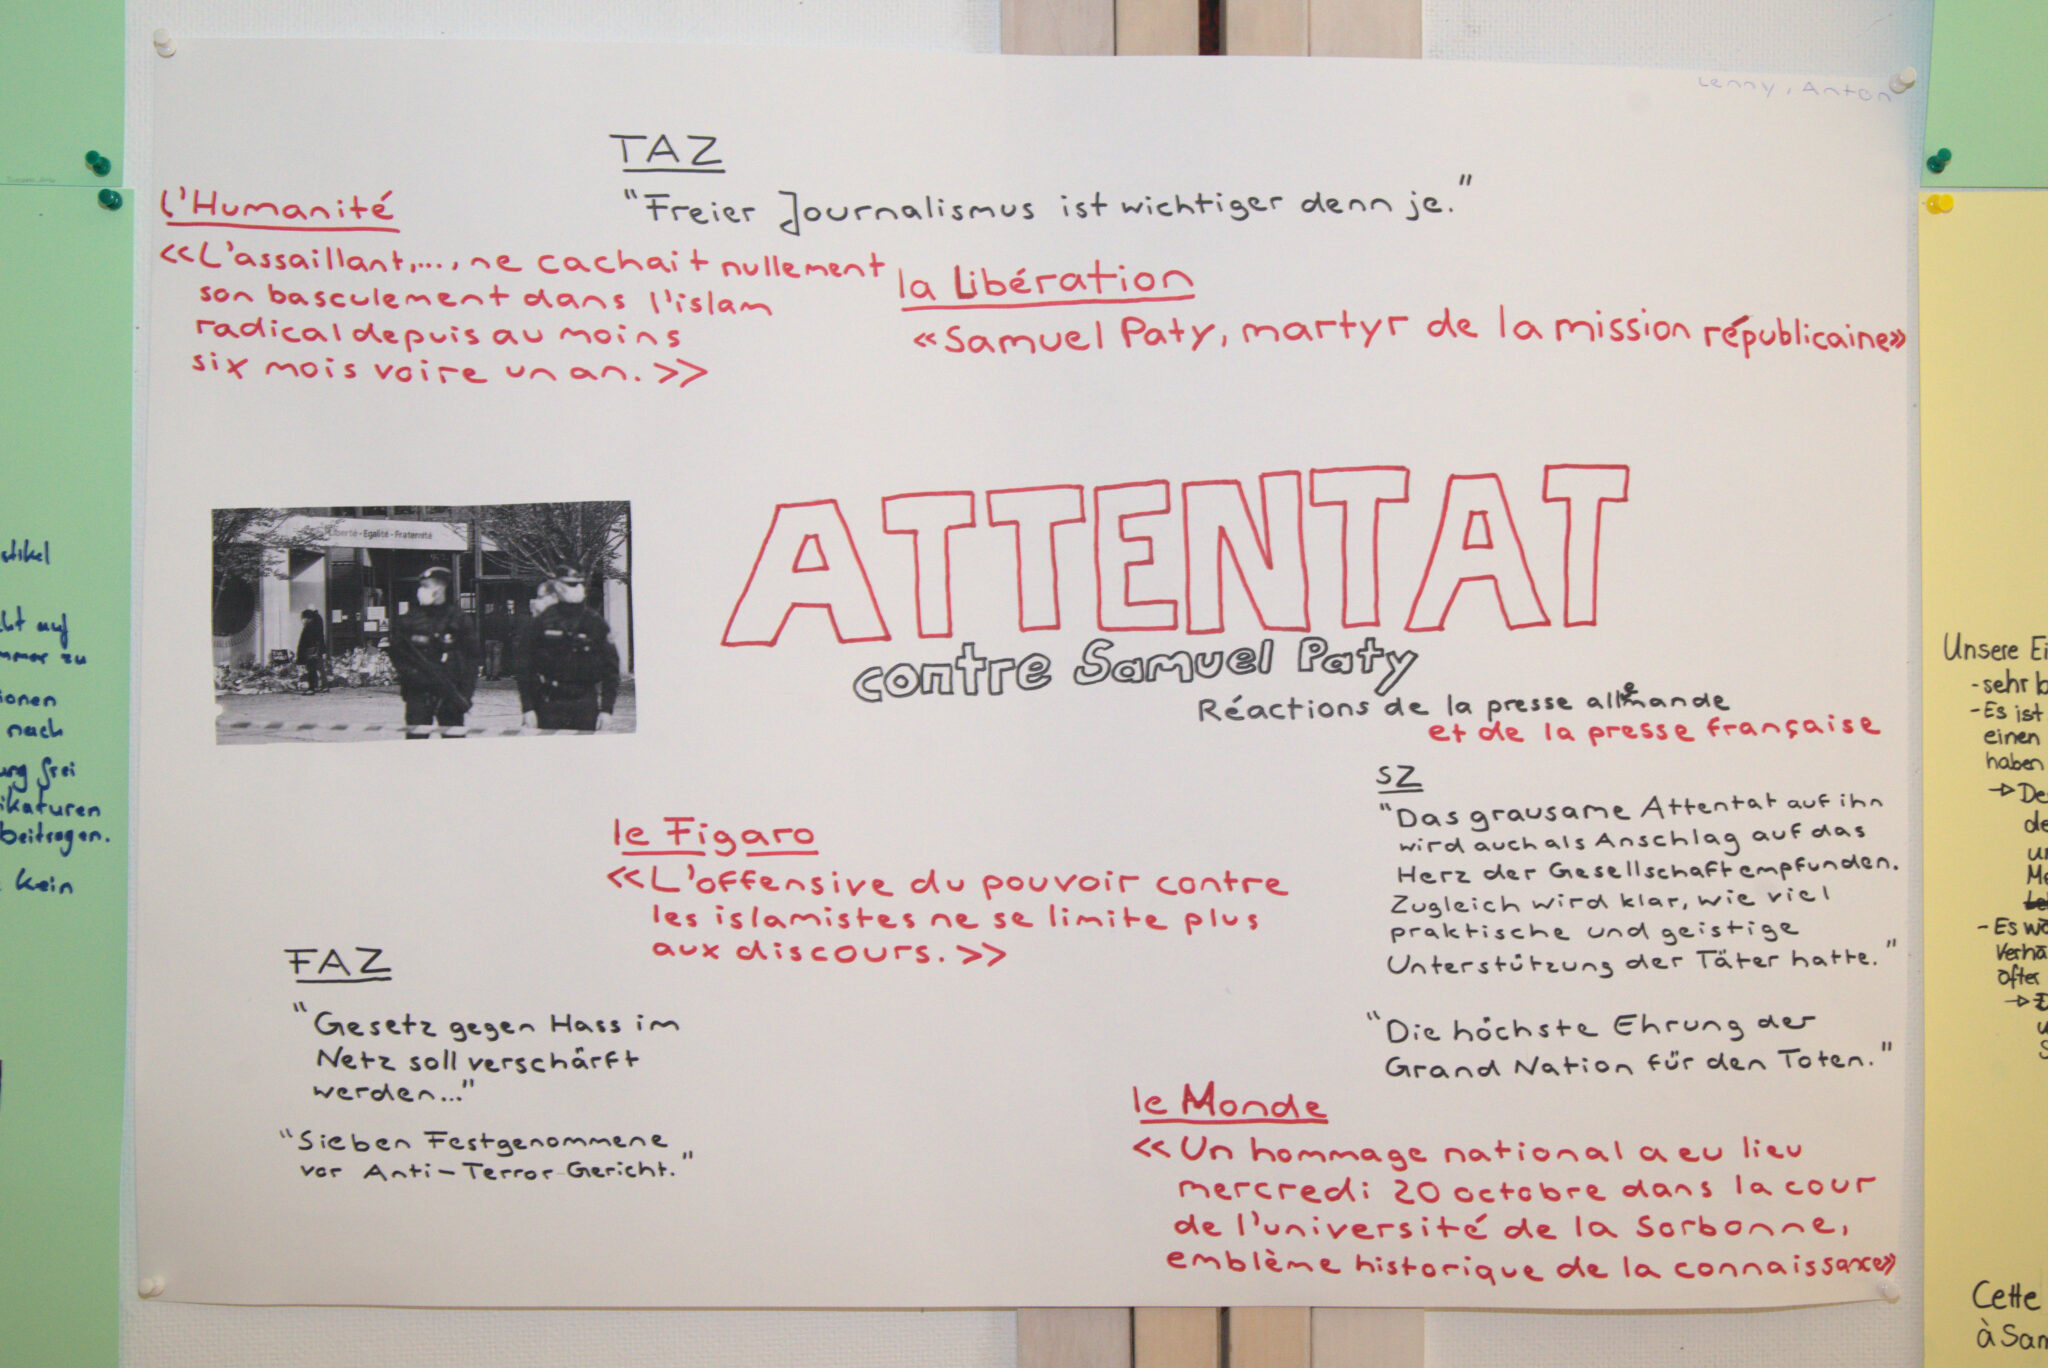 Lenny, Anton
TAZ
"Freier Journalismus ist wichtiger denn je."
l'Humanité
<<L'assaillant,..., ne cachait nullement
son basculement dans l'islam
radical depuis au moins
six mois voire un an.>>
la Libération
«Samuel Paty, martyr de la mission républicaine»
Liberté - Egalité - Fraternité
ATTENTAT
contre Samuel Paty
Réactions de la presse allemande
et de la presse française
SZ
"Das grausame Attentat auf ihn
wird auch als Anschlag auf das
Herz der Gesellschaft empfunden.
Zugleich wird klar, wie viel
praktische und geistige
Unterstützung der Täter hatte."
"Die höchste Ehrung der
Grand Nation für den Toten."
le Figaro
<<L'offensive du pouvoir contre
les islamistes ne se limite plus
aux discours.>>
FAZ
"Gesetz gegen Hass im
Netz soll verschärft
werden..."
"Sieben Festgenommene
vor Anti-Terror-Gericht."
le Monde
<<Un hommage national a eu lieu
mercredi 20 octobre dans la cour
de l'université de la Sorbonne,
emblème historique de la connaissance»
auf
zu
ionen
nach
frei
ikaturen
beitragen.
kein
Unsere
-sehr
-Es ist
einen
haben
-Es
öfter
Cette
à